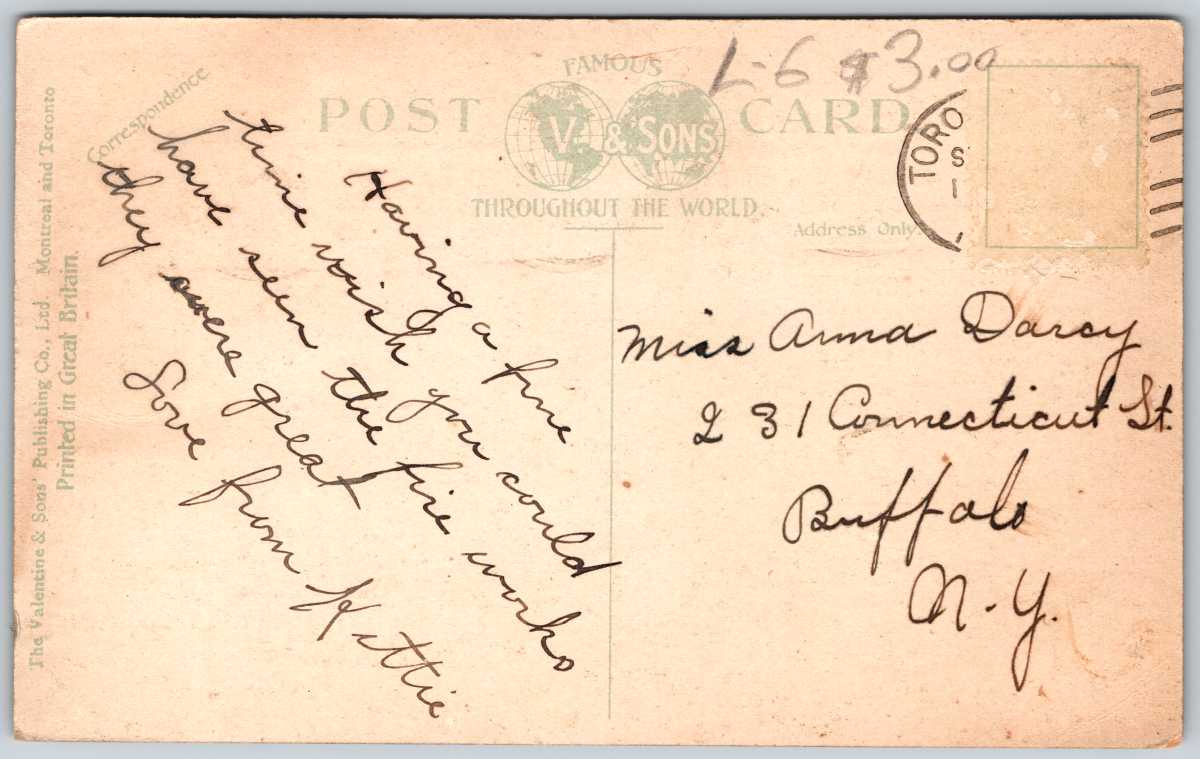 L-6 $3.00
FAMOUS
POST CARD
V. & SONS
THROUGHOUT THE WORLD.
Correspondence
Address Only.
TORO
S
1
The Valentine & Sons' Publishing Co., Ltd. Montreal and Toronto
Printed in Great Britain.
Having a fine
time wish you could
have seen the fire works
they were great
Love from Kittie
Miss Anna Darcy
231 Connecticut St.
Buffalo
N.Y.